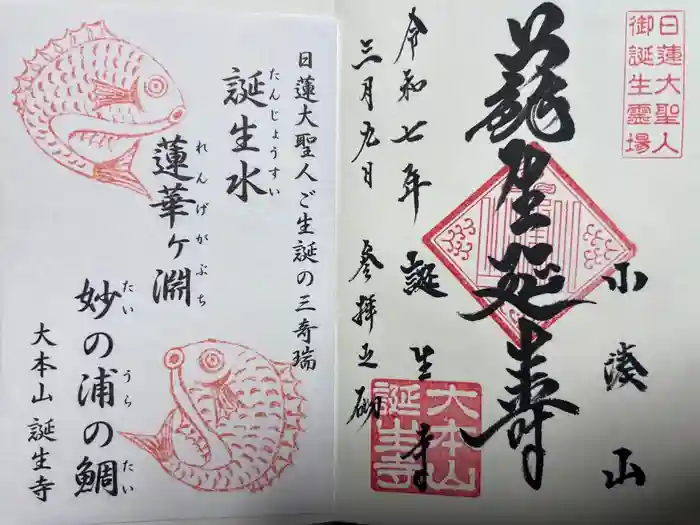 日蓮大聖人
御誕生霊場
小湊山
誕生寺
大本山
誕生寺
令和七年
三月九日 参拝之砌
日蓮大聖人ご生誕の三奇瑞
誕生水
たんじょうすい
蓮華ヶ淵
れんげがぶち
妙の浦の鯛
たい うら たい
大本山 誕生寺